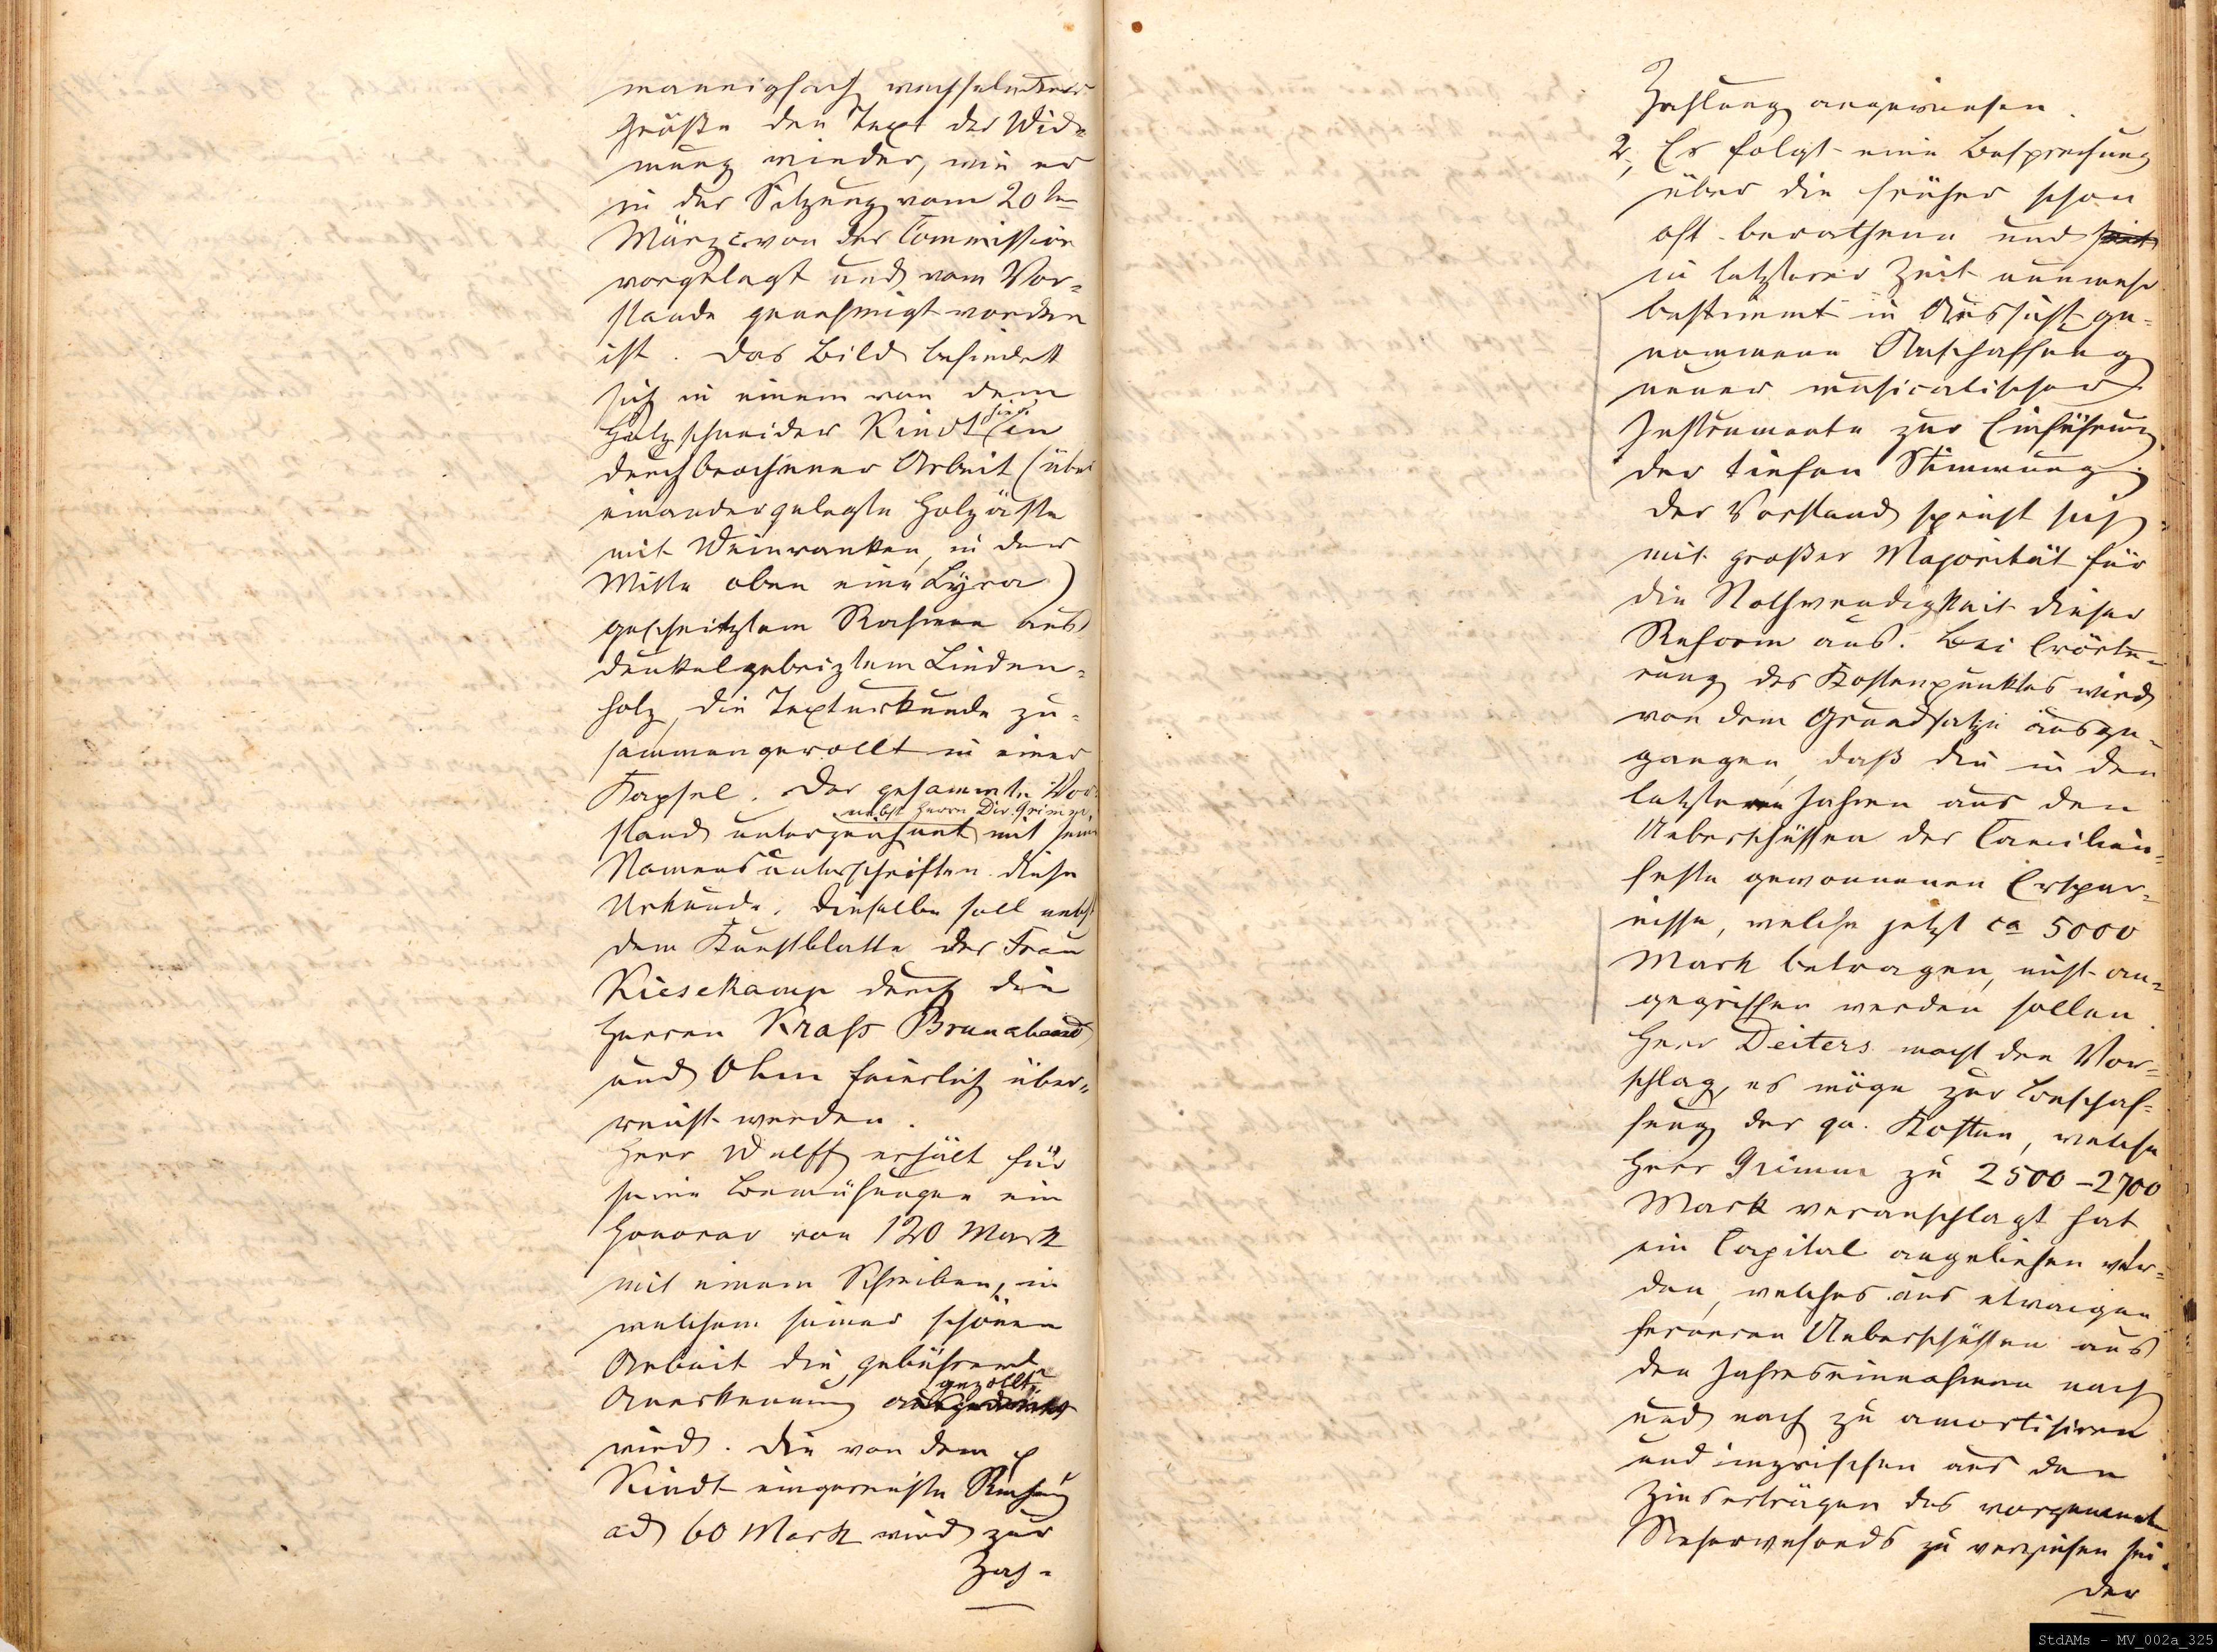 mannigfach wechselnder
Größe den Text der Wid-
mung wieder, wie er
in der Sitzung vom 20ten
März c. von der Commission
vorgelegt und vom Vor-
stande genehmigt worden
ist. Das Bild befindet
sich in einem von dem
Holzschneider Kindt hier in
durchbrochener Arbeit (über
einandergelegte Holzäste
mit Weinranken, in der
Mitte oben eine Lyra)
geschnitztem Rahmen aus
dunkelgebeiztem Linden-
holz, die Texturkunde zu-
sammengerollt in einer
Kapsel. Der gesammte Vor-
nebst Herrn Dir. Grimm
stand unterzeichnet mit sein
Namensunterschriften diese
Urkunde. Dieselbe soll nebst
dem Kunstblatte der Frau
Kiesekamp durch die
Herren Krass Brunabend
und Ohm feierlich über-
reicht werden.
Herr Wulff erhält für
seine Bemühungen ein
Honorar von 120 Mark
mit einem Schreiben, in
welchem seiner schönen
Arbeit die gebührende
gezollt
Anerkennung ausgedrückt
wird. Die von dem p
Kindt eingereichte Rechnung
ad 60 Mark wird zur
Zah-
Zahlung angewiesen.
2, Es folgt eine Besprechung
über die früher schon
oft berathene und
in letzterer Zeit nunmehr
bestimmt in Aussicht ge-
nommene Anschaffung
neuer musicalischer
Instrumente zur Einführung
der tiefen Stimmung.
Der Vorstand spricht sich
mit großer Majorität für
die Nothwendigkeit dieser
Reform aus. Bei Erörte-
rung des Kostenpunktes wird
von dem Grundsatze ausge-
gangen, daß die in den
letzteren Jahren aus den
Ueberschüssen der Caecilien-
feste gewonnenen Erspar-
nisse, welche jetzt ca 5000
Mark betragen, nicht an-
gegriffen werden sollen.
Herr Deiters macht den Vor-
schlag, es möge zur Beschaf-
fung der qu. Kosten, welche
Herr Grimm zu 2500-2700
Mark veranschlagt hat
ein Capital angeliehen wer-
den, welches aus etwaigen
ferneren Ueberschüssen aus
den Jahreseinnahmen nach
und nach zu amortisiren
und inzwischen aus den
Zinserträgen des vorgenannt
Reservefonds zu verzinsen sei.
Der
StdAMs - MV_002a_325